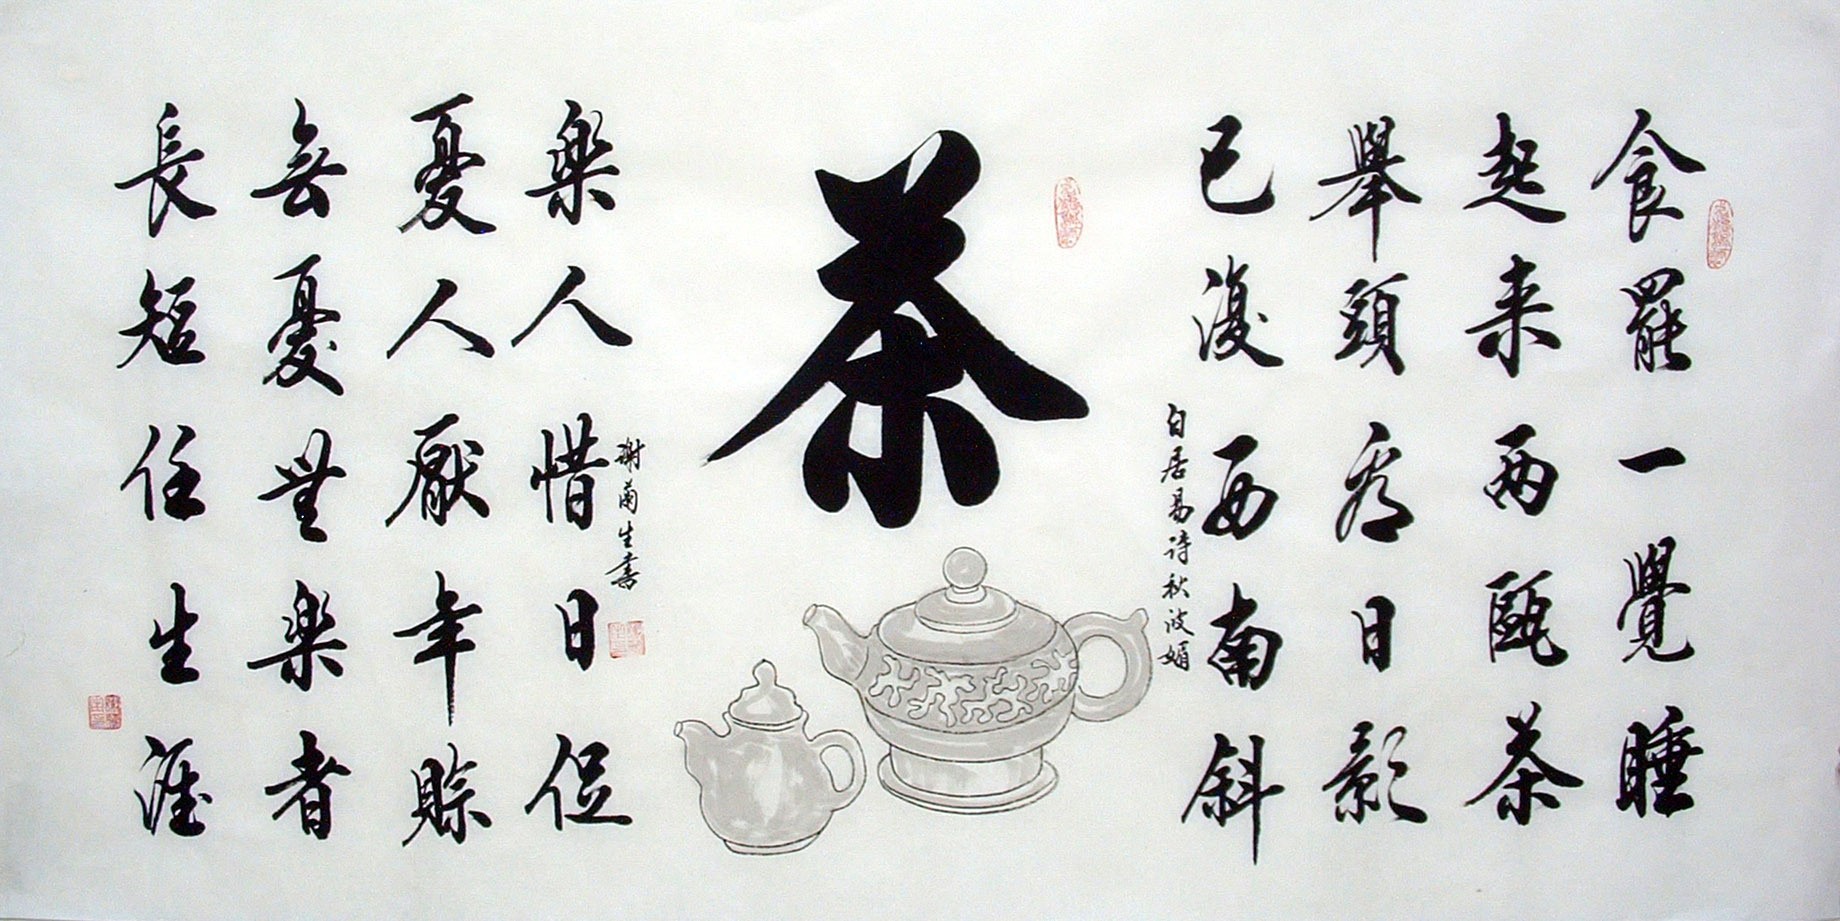 食罷一覺睡
起来兩甌茶
舉頭看日影
已復西南斜
茶
白居易詩秋波媚
樂人惜日促
憂人厭年賒
無憂無樂者
長短任生涯
謝蘭生書